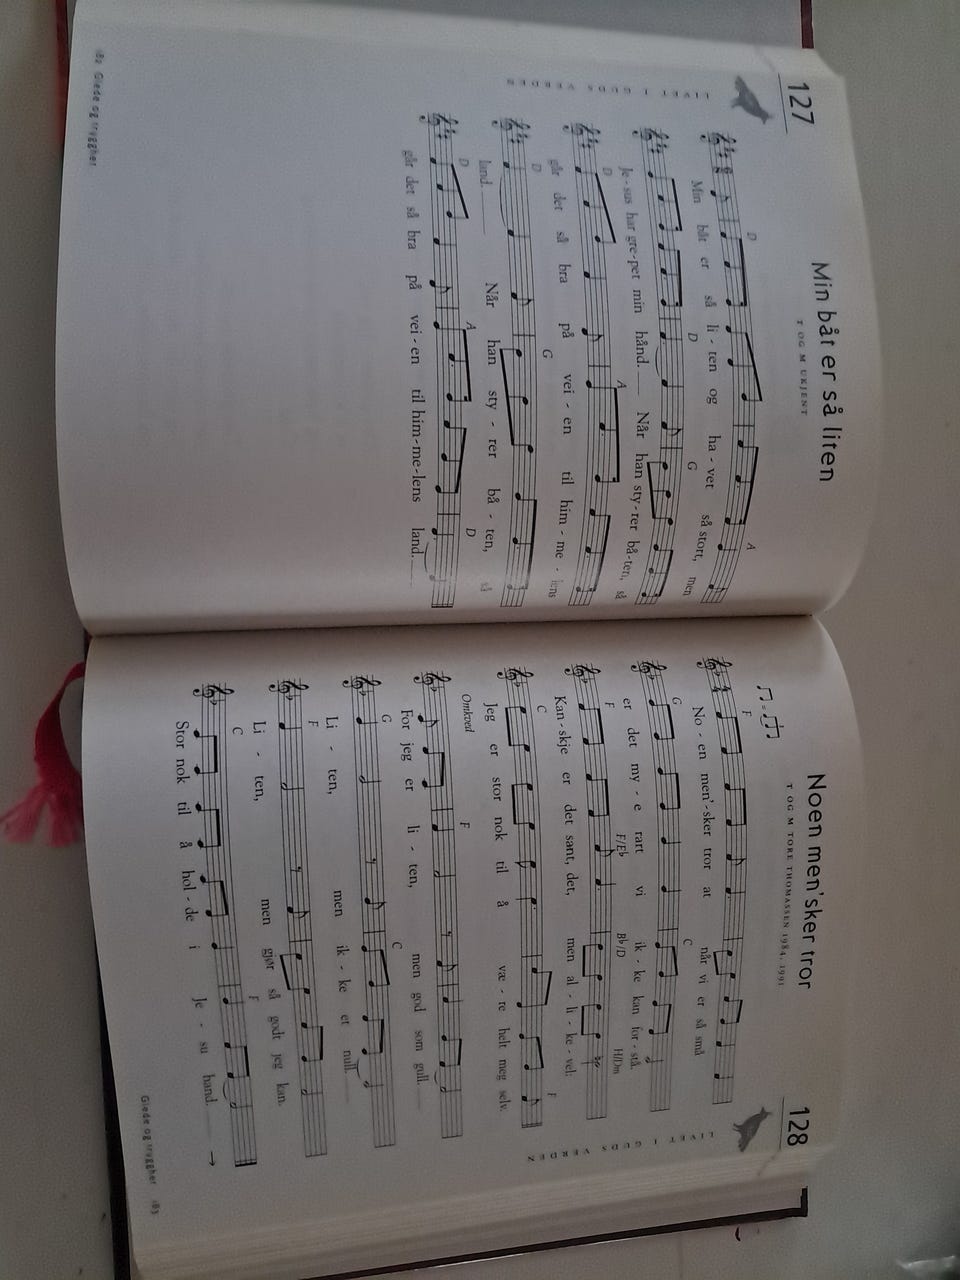 127
LIVET I GUDS VERDEN
Min båt er så liten
T OG M UKJENT
D A
Min båt er så li - ten og ha - vet så stort, men
D G
Je - sus har gre - pet min hånd. Når han sty - rer bå - ten, så
D A
går det så bra på vei - en til him - me - lens
D G
land. Når han sty - rer bå - ten, så
D A D
går det så bra på vei - en til him - me - lens land.
182 Glede og trygghet
128
LIVET I GUDS VERDEN
Noen men'sker tror
T OG M TORE THOMASSEN 1984, 1991
F
No - en men'-sker tror at når vi er så små
G C
er det my - e rart vi ik - ke kan for - stå.
F F/Eb Bb/D H/Dm
Kan - skje er det sant, det, men al - li - ke - vel:
C F
Jeg er stor nok til å væ - re helt meg selv.
Omkved
F
For jeg er li - ten, men god som gull.
G C
Li - ten, men ik - ke et null.
F
Li - ten, men gjør så godt jeg kan.
C F
Stor nok til å hol - de i Je - su hånd.
→
Glede og trygghet 183